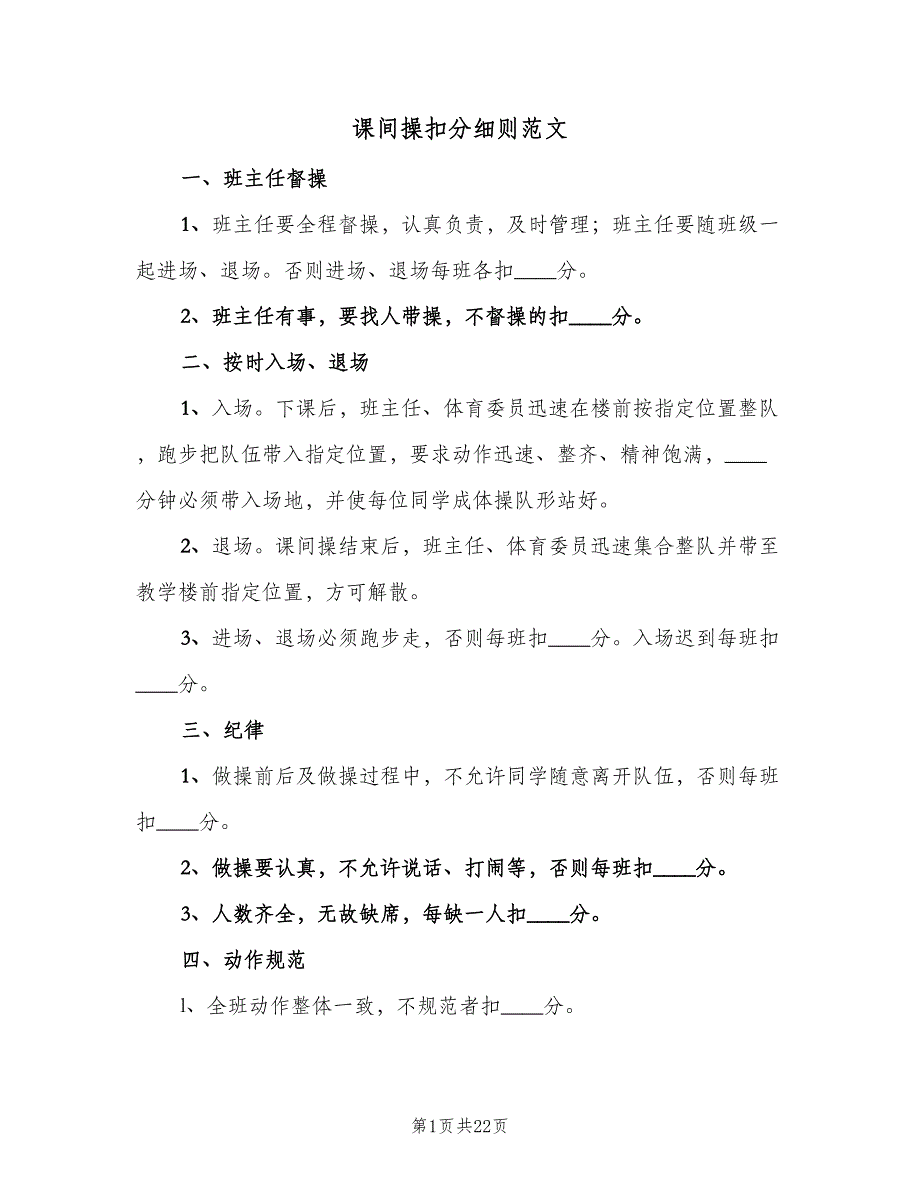 课间操扣分细则范文
一、班主任督操
1、班主任要全程督操，认真负责，及时管理；班主任要随班级一
起进场、退场。否则进场、退场每班各扣____分。
2、班主任有事，要找人带操，不督操的扣____分。
二、按时入场、退场
1、入场。下课后，班主任、体育委员迅速在楼前按指定位置整队
，跑步把队伍带入指定位置，要求动作迅速、整齐、精神饱满，____
分钟必须带入场地，并使每位同学成体操队形站好。
2、退场。课间操结束后，班主任、体育委员迅速集合整队并带至
教学楼前指定位置，方可解散。
3、进场、退场必须跑步走，否则每班扣____分。入场迟到每班扣
____分。
三、纪律
1、做操前后及做操过程中，不允许同学随意离开队伍，否则每班
扣____分。
2、做操要认真，不允许说话、打闹等，否则每班扣____分。
3、人数齐全，无故缺席，每缺一人扣____分。
四、动作规范
l、全班动作整体一致，不规范者扣____分。
第1页共22页